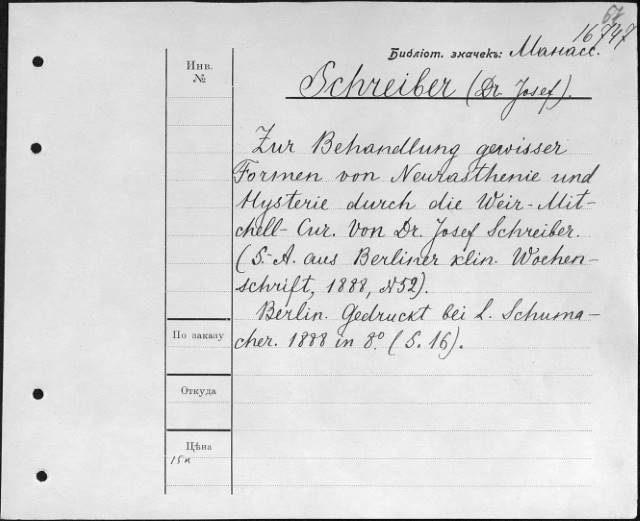 16747
Библіот. значекъ: Манасс.
Инв.
№
Schreiber (Dr. Josef).
Zur Behandlung gewisser
Formen von Neurasthenie und
Hysterie durch die Weir-Mit-
chell-Cur. Von Dr. Josef Schreiber.
(S.-A. aus Berliner klin. Wochen-
schrift, 1888, №52).
Berlin. Gedruckt bei L. Schuma-
cher. 1888 in 8º. (S. 16).
По заказу
Откуда
Цѣна
15к